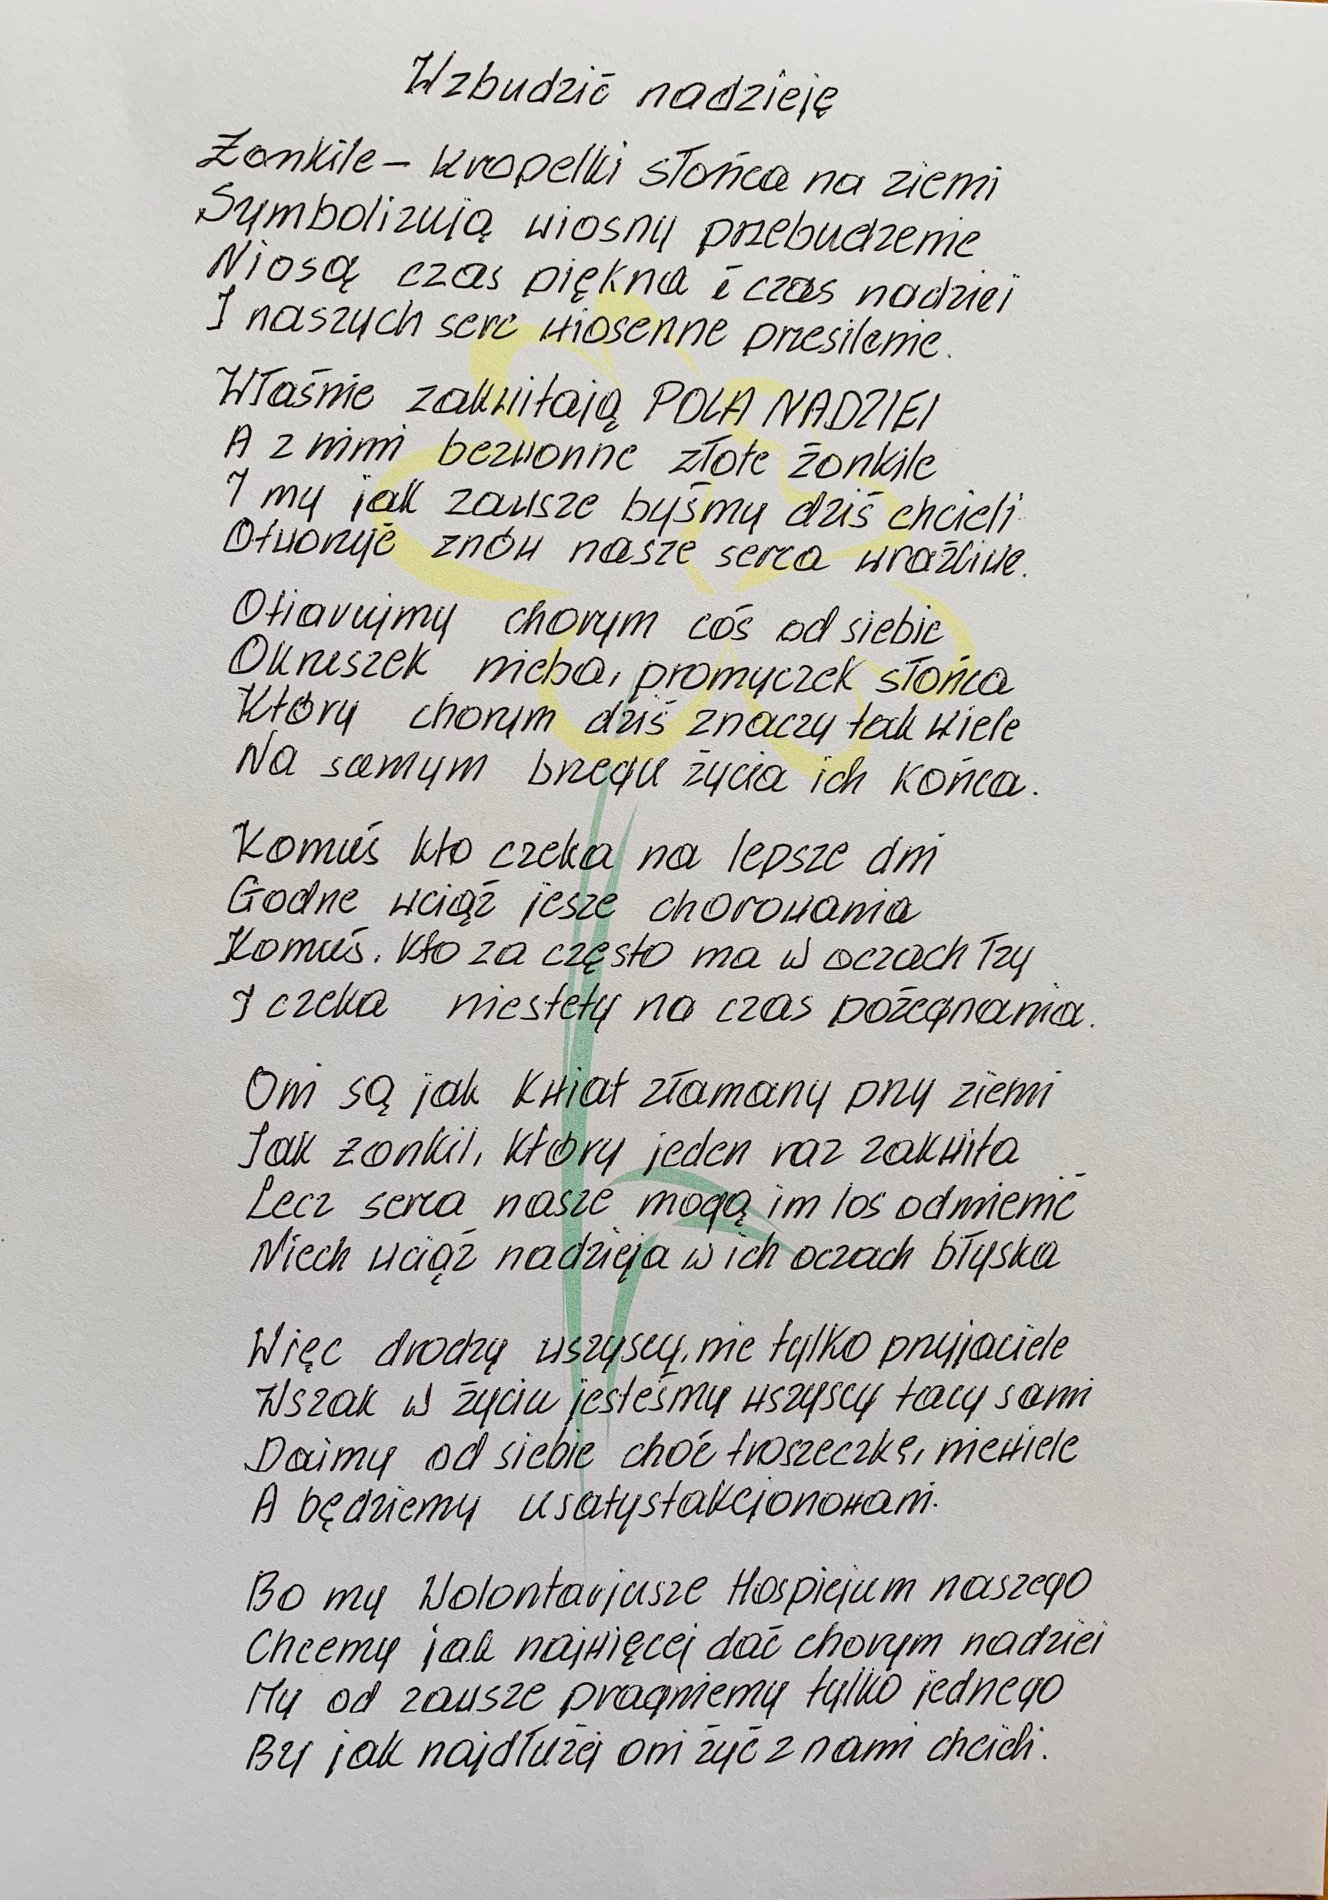 Wzbudzić nadzieję
Żonkile – kropelki słońca na ziemi
Symbolizują wiosny przebudzenie
Niosą czas piękna i czas nadziei
I naszych serc wiosenne przesilenie.
Właśnie zakwitają POLA NADZIEI
A z nimi bezwonne złote żonkile
I my jak zawsze byśmy dziś chcieli
Otworzyć znów nasze serca wrażliwe.
Ofiarujmy chorym coś od siebie
Okruszek nieba, promyczek słońca
Który chorym dziś znaczy tak wiele
Na samym brzegu życia ich końca.
Komuś kto czeka na lepsze dni
Godne wciąż jesze chorowania
Komuś, kto za często ma w oczach łzy
I czeka niestety na czas pożegnania.
Oni są jak kwiat złamany przy ziemi
Jak żonkil, który jeden raz zakwita
Lecz serca nasze mogą im los odmienić
Niech wciąż nadzieja w ich oczach błyska
Więc drodzy wszyscy, nie tylko przyjaciele
Wszak w życiu jesteśmy wszyscy tacy sami
Dajmy od siebie choć troszeczkę, niewiele
A będziemy usatysfakcjonowani.
Bo my Wolontariusze Hospicjum naszego
Chcemy jak najwięcej dać chorym nadziei
My od zawsze pragniemy tylko jednego
By jak najdłużej oni żyć z nami chcieli.